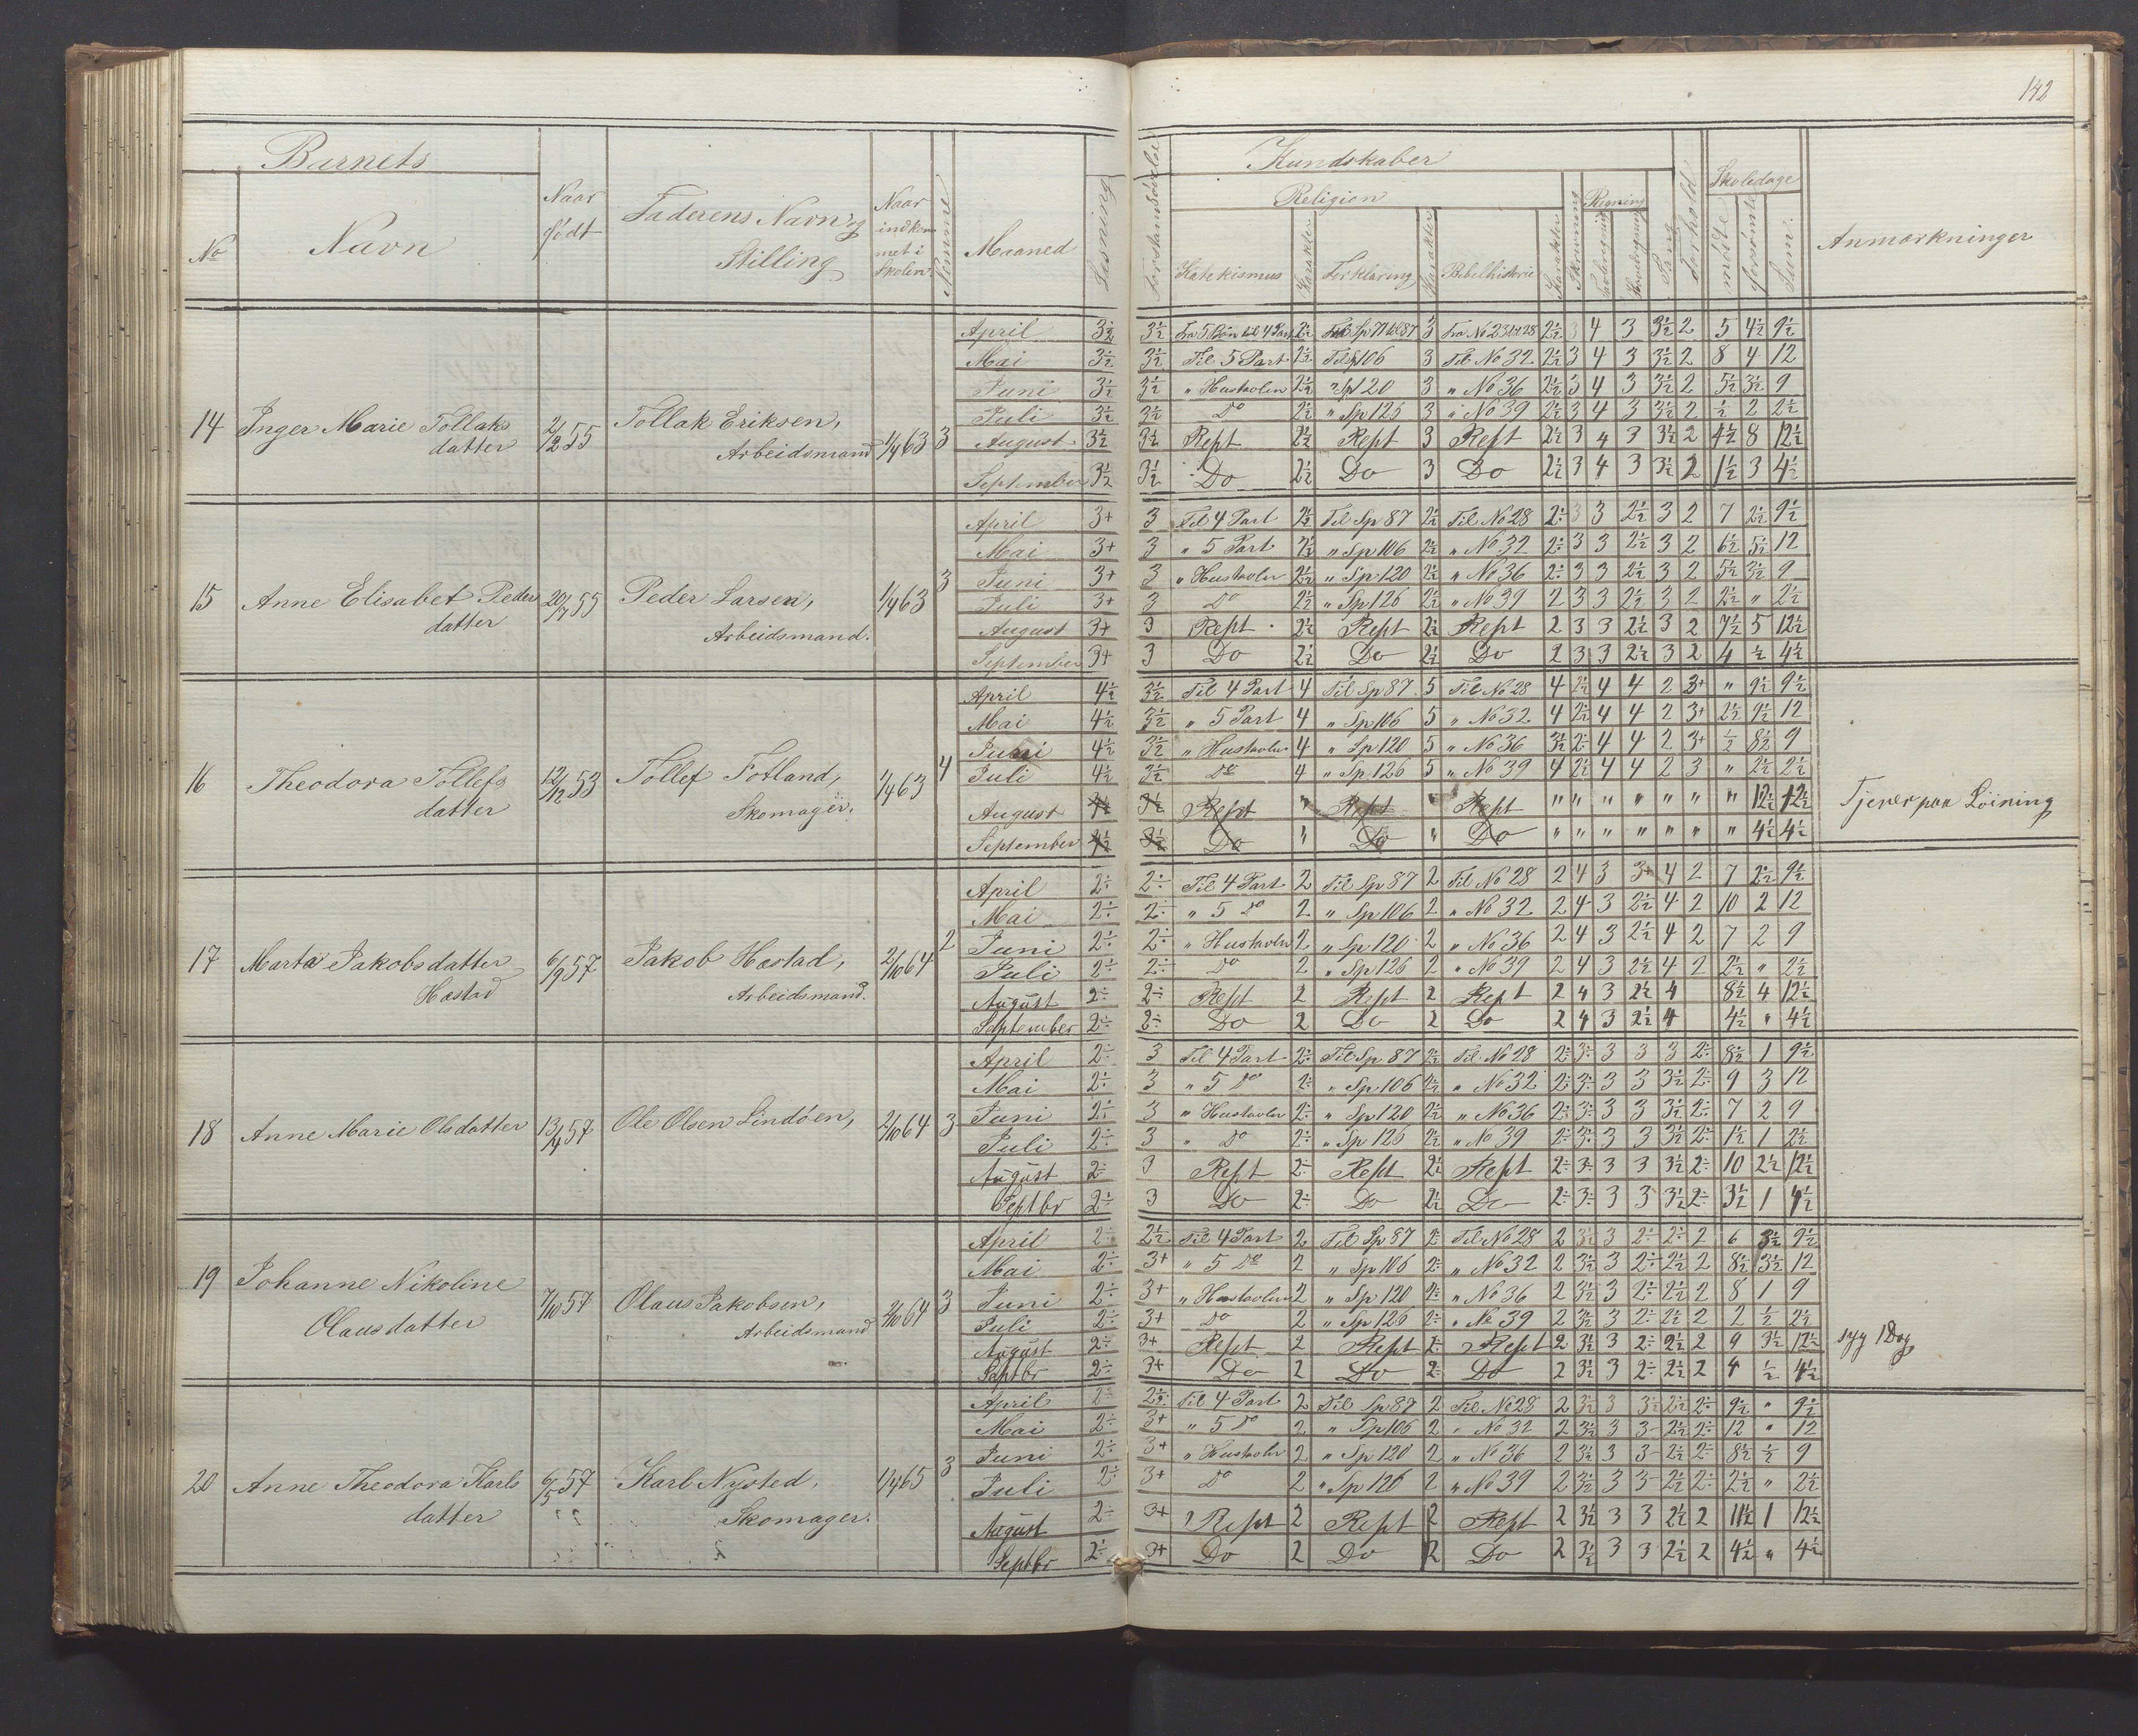 142
Barnets
No
Navn
Naar født
Faderens Navn og Stilling
Naar indkommet i Skolen
Nemme
Maaned
Læsning
Forstandsøvelse
Kundskaber
Religion
Katekismus
Karakter
Forklaring
Karakter
Bibelhistorie
Karakter
Skrivning
Regning
Tavleregning
Hovedregning
Sang
Forhold
Skoledage
mødte
forsømte
Sum
Anmærkninger
14 Inger Marie Tollaks datter 2/12 55 Tollak Eriksen, Arbeidsmand 1/4 63 3
April 3½ 3½ Fra 5 Bøn til 4 Part 2½ Fra Sp 71 til 87 3 Fra No 23 til 28 2½ 3 4 3 3½ 2 5 4½ 9½
Mai 3½ 3½ Til 5 Part 2½ Til Sp 106 3 Til No 32 2½ 3 4 3 3½ 2 8 4 12
Juni 3½ 3½ " Hustavlen 2½ " Sp 120 3 " No 36 2½ 3 4 3 3½ 2 5½ 3½ 9
Juli 3½ 3½ Do 2½ " Sp 126 3 " No 39 2½ 3 4 3 3½ 2 ½ 2 2½
August 3½ 3½ Rept 2½ Rept 3 Rept 2½ 3 4 3 3½ 2 4½ 8 12½
September 3½ 3½ Do 2½ Do 3 Do 2½ 3 4 3 3½ 2 1½ 3 4½
15 Anne Elisabet Peders datter 20/7 55 Peder Larsen, Arbeidsmand. 1/4 63 3
April 3+ 3 Til 4 Part 2½ Til Sp 87 2½ Til No 28 2÷ 3 3 2½ 3 2 7 2½ 9½
Mai 3+ 3 " 5 Part 2½ " Sp 106 2½ " No 32 2÷ 3 3 2½ 3 2 6½ 5½ 12
Juni 3+ 3 " Hustavlen 2½ " Sp 120 2½ " No 36 2÷ 3 3 2½ 3 2 5½ 3½ 9
Juli 3+ 3 Do 2½ " Sp 126 2½ " No 39 2 3 3 2½ 3 2 2½ " 2½
August 3+ 3 Rept 2½ Rept 2½ Rept 2 3 3 2½ 3 2 7½ 5 12½
September 3+ 3 Do 2½ Do 2½ Do 2 3 3 2½ 3 2 4 ½ 4½
16 Theodora Tollefs datter 12/12 53 Tollef Fotland, Skomager. 1/4 63 4
April 4½ 3½ Til 4 Part 4 Til Sp 87 5 Til No 28 4 2½ 4 4 2 3+ " 9½ 9½
Mai 4½ 3½ " 5 Part 4 " Sp 106 5 " No 32 4 2½ 4 4 2 3+ 2½ 9½ 12
Juni 4½ 3½ " Hustavlen 4 " Sp 120 5 " No 36 3½ 2÷ 4 4 2 3+ ½ 8½ 9
Juli 4½ 3½ Do 4 " Sp 126 5 " No 39 4 2½ 4 4 2 3 " 2½ 2½
August 4½ 3½ Rept " Rept " Rept " " " " " " " 12½ 12½ Tjener paa Løining
September 4½ 3½ Do " Do " Do " " " " " " " 4½ 4½
17 Marta Jakobsdatter Hæstad 6/9 57 Jakob Hæstad, Arbeidsmand. 2/10 64 2
April 2÷ 2÷ Til 4 Part 2 Til Sp 87 2 Til No 28 2 4 3 3+ 4 2 7 2½ 9½
Mai 2÷ 2÷ " 5 Do 2 " Sp 106 2 " No 32 2 4 3 2½ 4 2 10 2 12
Juni 2÷ 2÷ " Hustavlen 2 " Sp 120 2 " No 36 2 4 3 2½ 4 2 7 2 9
Juli 2÷ 2÷ Do 2 " Sp 126 2 " No 39 2 4 3 2½ 4 2 2½ " 2½
August 2÷ 2÷ Rept 2 Rept 2 Rept 2 4 3 2½ 4 8½ 4 12½
September 2÷ 2÷ Do 2 Do 2 Do 2 4 3 2½ 4 4½ " 4½
18 Anne Marie Olsdatter 13/4 57 Ole Olsen Lindøen, 2/10 64 3
April 2÷ 3 Til 4 Part 2÷ Til Sp 87 2½ Til No 28 2÷ 3÷ 3 3 3 2÷ 8½ 1 9½
Mai 2÷ 3 " 5 Do 2÷ " Sp 106 2½ " No 32 2÷ 3÷ 3 3 3½ 2÷ 9 3 12
Juni 2÷ 3 " Hustavlen 2÷ " Sp 120 2½ " No 36 2÷ 3÷ 3 3 3½ 2÷ 7 2 9
Juli 2÷ 3 " Do 2÷ " Sp 126 2½ " No 39 2÷ 3÷ 3 3 3½ 2÷ 1½ 1 2½
August 2÷ 3 Rept 2÷ Rept 2½ Rept 2÷ 3÷ 3 3 3½ 2÷ 10 2½ 12½
Septbr 2÷ 3 Do 2÷ Do 2½ Do 2÷ 3÷ 3 3 3½ 2÷ 3½ 1 4½
19 Johanne Nikoline Olausdatter 7/10 57 Olaus Jakobsen, Arbeidsmand 2/10 64 3
April 2÷ 2½ Til 4 Part 2 Til Sp 87 2÷ Til No 28 2 3½ 3 2÷ 2÷ 2 6 3½ 9½
Mai 2÷ 3+ " 5 Do 2 " Sp 106 2÷ " No 32 2 3½ 3 2÷ 2½ 2 8½ 3½ 12
Juni 2÷ 3+ " Hustavlen 2 " Sp 120 2÷ " No 36 2 3½ 3 2÷ 2½ 2 8 1 9
Juli 2÷ 3+ Do 2 " Sp 126 2÷ " No 39 2 3½ 3 2÷ 2½ 2 2 ½ 2½
August 2÷ 3+ Rept 2 Rept 2÷ Rept 2 3½ 3 2÷ 2½ 2 9 3½ 12½ syg 1 Dag
Septbr 2÷ 3+ Do 2 Do 2÷ Do 2 3½ 3 2÷ 2½ 2 4 ½ 4½
20 Anne Theodora Karls datter 6/5 57 Karl Nysted, Skomager. 1/4 65 3
April 2÷ 2÷ Til 4 Part 2 Til Sp 87 2 Til No 28 2 3½ 3 3½ 2½ 2÷ 9½ " 9½
Mai 2÷ 3+ " 5 Do 2 " Sp 106 2 " No 32 2 3½ 3 3- 2½ 2÷ 12 " 12
Juni 2÷ 3+ " Hustavlen 2 " Sp 120 2 " No 36 2 3½ 3 3- 2½ 2÷ 8½ ½ 9
Juli 2÷ 3+ Do 2 " Sp 126 2 " No 39 2 3½ 3 3- 2½ 2÷ 2½ " 2½
August 2÷ 3+ Rept 2 Rept 2 Rept 2 3½ 3 3 2½ 2 11½ 1 12½
Septbr 2÷ 3+ Do 2 Do 2 Do 2 3½ 3 3 2½ 2 4½ " 4½